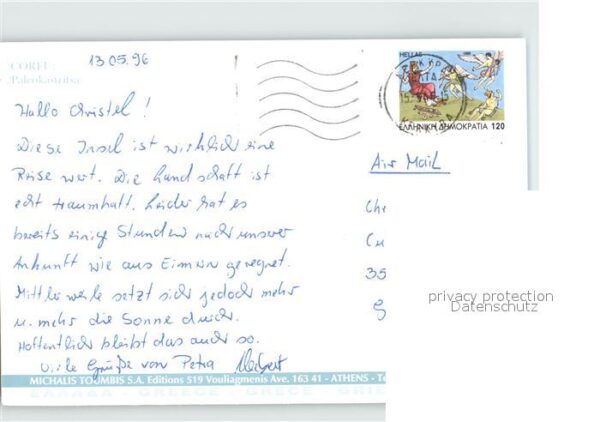 13.05.96
CORFU:
Paleokastritsa
HELLAS
ΕΛΛΗΝΙΚΗ ΔΗΜΟΚΡΑΤΙΑ 120
Hallo Christel!
Diese Insel ist wirklich eine
Reise wert. Die Landschaft ist
echt traumhaft. Leider hat es
bereits einige Stunden nach unserer
Ankunft wie aus Eimern geregnet.
Mittlerweile setzt sich jedoch mehr
u. mehr die Sonne durch.
Hoffentlich bleibt das auch so.
Viele Grüße von Petra Herbert
Air Mail
Ch
35
privacy protection
Datenschutz
MICHALIS TOUMBIS S.A. Editions 519 Vouliagmenis Ave. 163 41 - ATHENS - Te
ΕΛΛΑΔΑ - GREECE - GRECE - GRIE